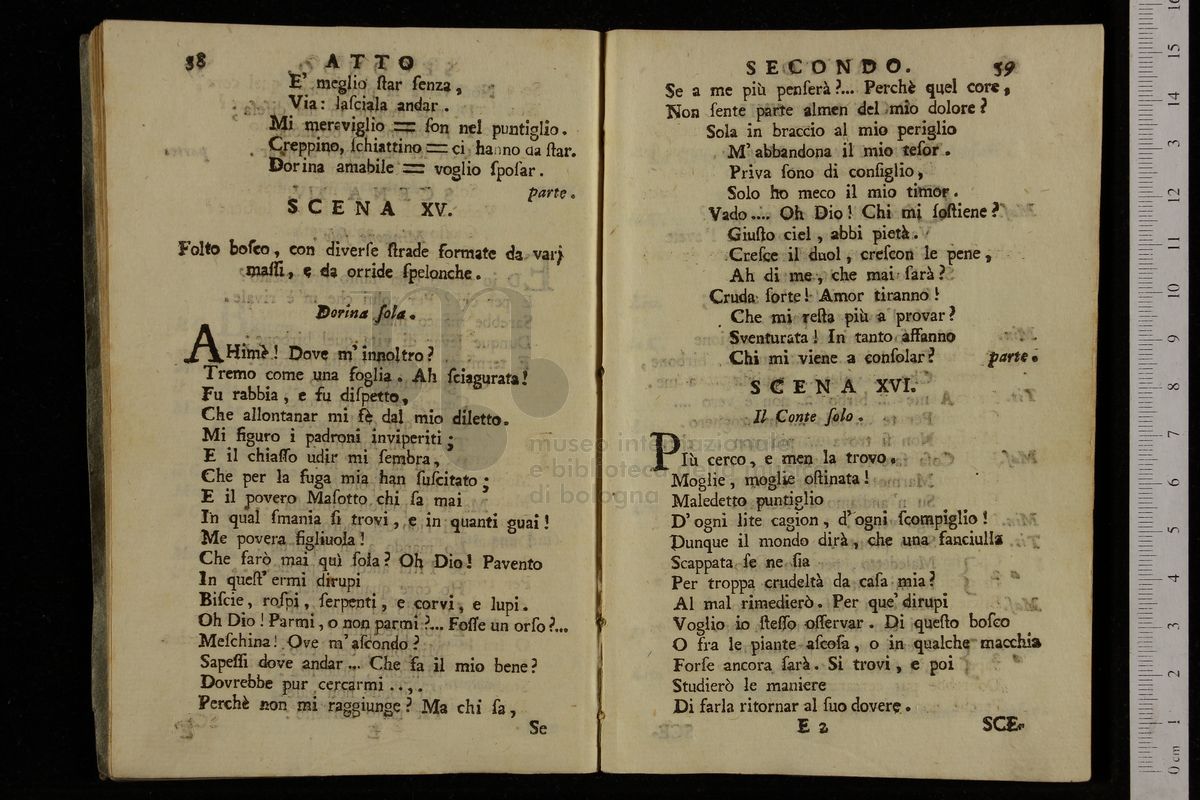 58 ATTO
E' meglio ſtar ſenza,
Via: laſciala andar.
Mi mereviglio = ſon nel puntiglio.
Creppino, ſchiattino = ci hanno da ſtar.
Dorina amabile = voglio ſpoſar.
parte.
SCENA XV.
Folto boſco, con diverſe ſtrade formate da varj
maſſi, e da orride ſpelonche.
Dorina ſola.
AHimè! Dove m'innoltro?
Tremo come una foglia. Ah ſciagurata!
Fu rabbia, e fu diſpetto,
Che allontanar mi fè dal mio diletto.
Mi figuro i padroni inviperiti;
E il chiaſſo udir mi ſembra,
Che per la fuga mia han ſuſcitato;
E il povero Maſotto chi ſa mai
In qual ſmania ſi trovi, e in quanti guai!
Me povera figliuola!
Che farò mai quì ſola? Oh Dio! Pavento
In queſt' ermi dirupi
Biſcie, roſpi, ſerpenti, e corvi, e lupi.
Oh Dio! Parmi, o non parmi?... Foſſe un orſo?...
Meſchina! Ove m'aſcondo?
Sapeſſi dove andar... Che fa il mio bene?
Dovrebbe pur cercarmi....
Perchè non mi raggiunge? Ma chi ſa,
Se
SECONDO. 59
Se a me più penſerà?... Perchè quel core,
Non ſente parte almen del mio dolore?
Sola in braccio al mio periglio
M'abbandona il mio teſor.
Priva ſono di conſiglio,
Solo ho meco il mio timor.
Vado.... Oh Dio! Chi mi ſoſtiene?
Giuſto ciel, abbi pietà.
Creſce il duol, creſcon le pene,
Ah di me, che mai ſarà?
Cruda ſorte! Amor tiranno!
Che mi reſta più a provar?
Sventurata! In tanto affanno
Chi mi viene a conſolar? parte.
SCENA XVI.
Il Conte ſolo.
PIù cerco, e men la trovo.
Moglie, moglie oſtinata!
Maledetto puntiglio
D'ogni lite cagion, d'ogni ſcompiglio!
Dunque il mondo dirà, che una fanciulla
Scappata ſe ne ſia
Per troppa crudeltà da caſa mia?
Al mal rimedierò. Per que' dirupi
Voglio io ſteſſo oſſervar. Di queſto boſco
O fra le piante aſcoſa, o in qualche macchia
Forſe ancora ſarà. Si trovi, e poi
Studierò le maniere
Di farla ritornar al ſuo dovere.
E 2 SCE-
museo internazionale
e biblioteca della musica
di bologna